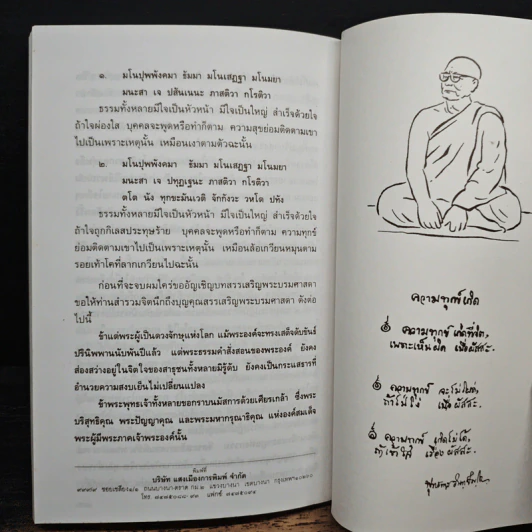 ๑. มโนปุพพังคมา ธัมมา มโนเสฏฐา มโนมยา
มนะสา เจ ปสันเนนะ ภาสติวา กโรติวา
ธรรมทั้งหลายมีใจเป็นหัวหน้า มีใจเป็นใหญ่ สำเร็จด้วยใจ
ถ้าใจผ่องใส บุคคลจะพูดหรือทำก็ตาม ความสุขย่อมติดตามเขา
ไปเป็นเพราะเหตุนั้น เหมือนเงาตามตัวฉะนั้น
๒. มโนปุพพังคมา ธัมมา มโนเสฏฐา มโนมยา
มนะสา เจ ปทุฏเฐนะ ภาสติวา กโรติวา
ตโต นัง ทุกขะมันเวติ จักกังวะ วหโต ปทัง
ธรรมทั้งหลายมีใจเป็นหัวหน้า มีใจเป็นใหญ่ สำเร็จด้วยใจ
ถ้าใจถูกกิเลสประทุษร้าย บุคคลจะพูดหรือทำก็ตาม ความทุกข์
ย่อมติดตามเขาไปเป็นเพราะเหตุนั้น เหมือนล้อเกวียนหมุนตาม
รอยเท้าโคที่ลากเกวียนไปฉะนั้น
ก่อนที่จะจบผมใคร่ขออัญเชิญบทสรรเสริญพระบรมศาสดา
ขอให้ท่านสำรวมจิตนึกถึงบุญคุณสรรเสริญพระบรมศาสดา ดังต่อ
ไปนี้
ข้าแต่พระผู้เป็นดวงจักษุแห่งโลก แม้พระองค์จะทรงเสด็จดับขันธ์
ปรินิพพานนับพันปีแล้ว แต่พระธรรมคำสั่งสอนของพระองค์ ยังคง
ส่องสว่างอยู่ในจิตใจของสาธุชนทั้งหลายมิรู้ดับ ยังคงเป็นกระแสธารที่
อำนวยความสงบเย็นไม่เปลี่ยนแปลง
ข้าพระพุทธเจ้าทั้งหลายขอกราบนมัสการด้วยเศียรเกล้า ซึ่งพระ
บริสุทธิคุณ พระปัญญาคุณ และพระมหากรุณาธิคุณ แห่งองค์สมเด็จ
พระผู้มีพระภาคเจ้าพระองค์นั้น
พิมพ์ที่
บริษัท แสงเมืองการพิมพ์ จำกัด
ถนนบางนา-ตราด กม.๒ แขวงบางนา เขตบางนา กรุงเทพฯ
โทร. แฟกซ์
ความทุกข์เกิด
๑ ความทุกข์ เกิดที่จิต,
เพราะเห็นผิด เมื่อผัสสะ.
๑ ความทุกข์ จะไม่โผล่,
ถ้าไม่โง่ เมื่อผัสสะ.
๑ ความทุกข์ เกิดไม่ได้,
ถ้าเข้าใจ เรื่องผัสสะ.